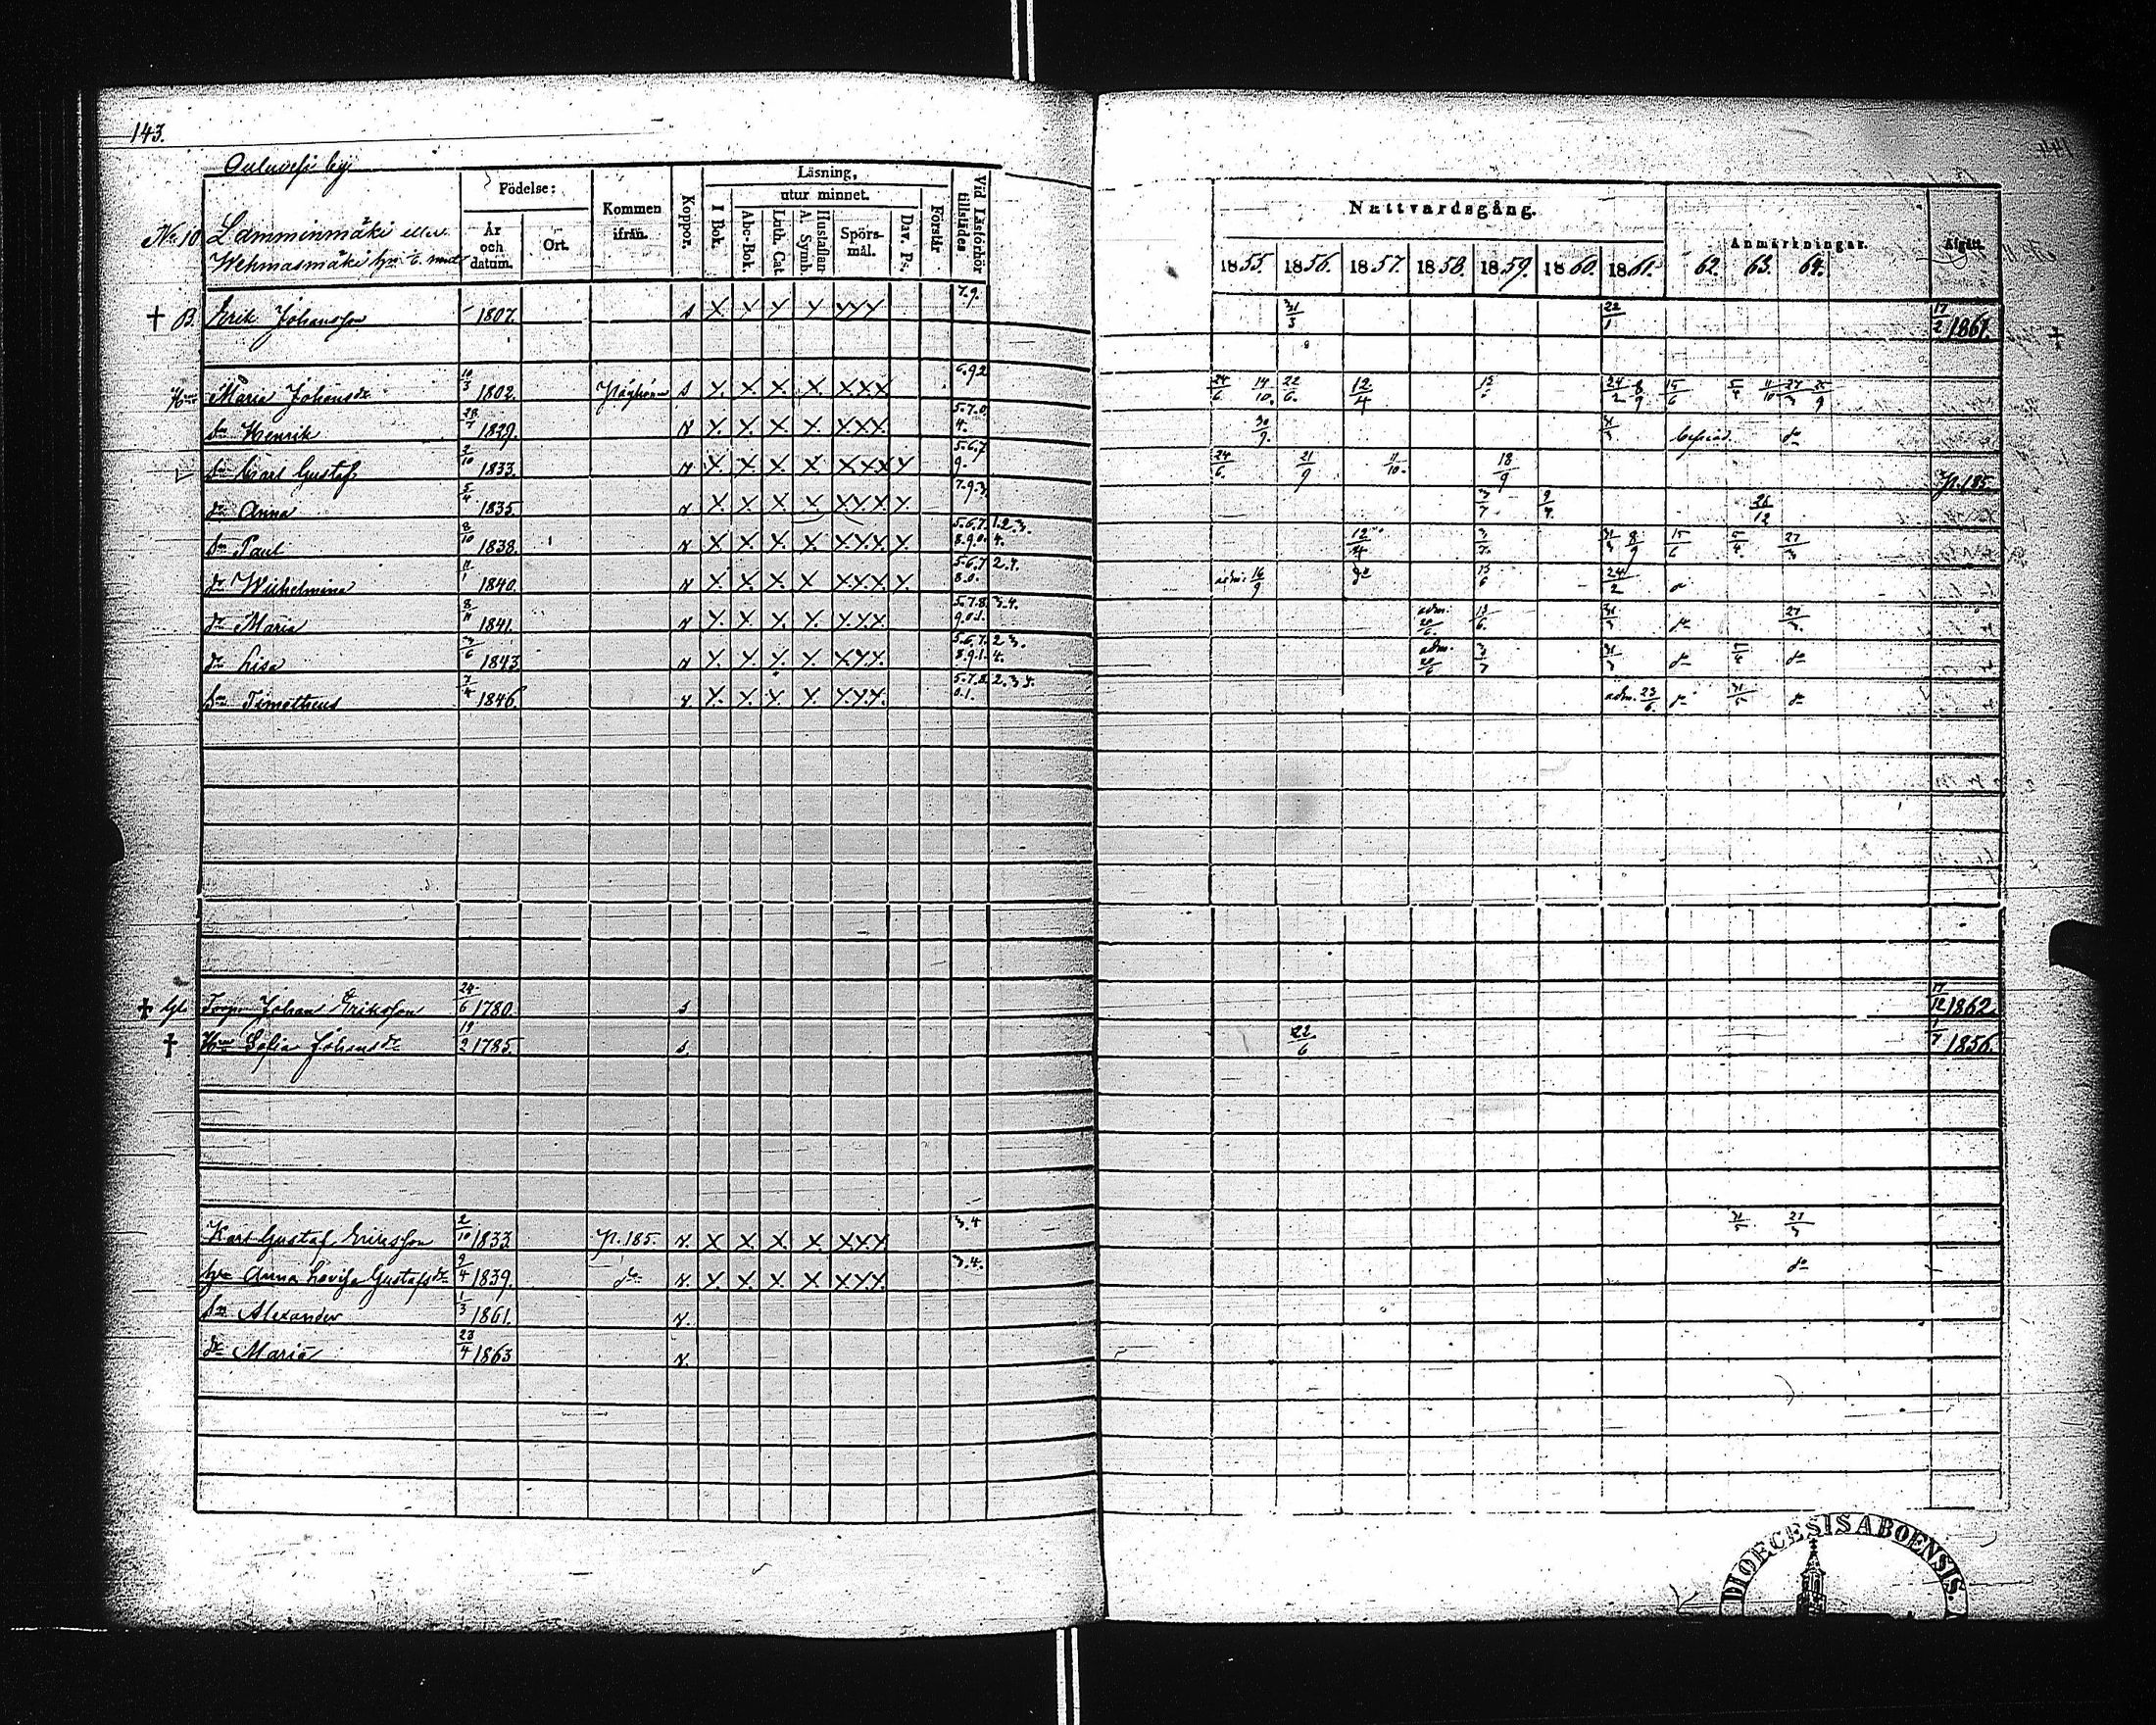 143.
by
Läsning,
Födelse:
utur minnet.
Kommen ifrån.
Koppor.
I Bok.
Abc-Bok.
Luth. Cat.
Hustaflan A. Symb.
Spörsmål.
Dav. Ps.
Förstår
Vid Läsförhör tillstädes
År och datum.
Ort.
No 10 Lamminmäki eller
Wehmasmäki
Nattvardsgång.
Anmärkningar.
Afgått.
1855. 1856. 1857. 1858. 1859. 1860. 1861. 62. 63. 64.
† B. Erik Johansson 1807. s X X X X XXX 7.9. 31/3 22/1 17/2 1861.
Maria Johansdr 10/3 1802. s X. X. X. X. XXX 24/6 14/10. 22/6. 12/4 24/2 8/9 15/6 5/4 11/10 27/3 25/9
sn Henrik 28/7 1829. X. X. X. X. XXX. 5.7.0. 4. 30/9. 31/3
sn Carl Gustaf 2/10 1833. X X X X XXX X 5.6.7 9. 24/6. 21/9 11/10. 18/9 p. 185
dr Anna 5/4 1835. X X X X XXX X. 7.9.3. 3/7 9/9. 26/12
sn Paul 8/10 1838. X X. X. X. X.X.X. X. 5.6.7. 1.2.3. 8.9.0. 4. 12/4 3/7. 31/3 8/9 15/6 5/4 27/3
dr Wilhelmina 11/1 1840. X. X. X. X. XXX. X. 5.6.7 2.4. 8.0. adm. 16/9 do 13/6 24/2
dr Maria 8/11 1841. X. X. X. X. XXX. 5.7.8. 3.4. 9.0.1. adm. 20/6. 13/6. 31/3 do 27/3.
dr Lisa 3/6 1843. X. X. X. X. XXX. 5.6.7. 2.3. 8.9.1. 4. adm. 20/6 3/7 31/3 do 5/4 do
sn Timotheus 7/4 1846. X. X. X. X. X.X.X. 5.7.8. 2.3.4. 0.1. adm. 23/6. do 31/5 do
† Johan Eriksson 24/6 1780. s 17/12 1862.
† Sofia Johansdr 19/2 1785. s. 22/6 1/7 1856.
Karl Gustaf Eriksson 2/10 1833. p. 185. X X. X. X. XXX 3.4 31/5 27/3
Anna Lovisa Gustafsdr 9/4 1839. do X. X. X. X XXX. 3.4. do
sn Alexander 1/3 1861.
dr Maria 23/4 1863
DIOECESIS ABOENSIS.